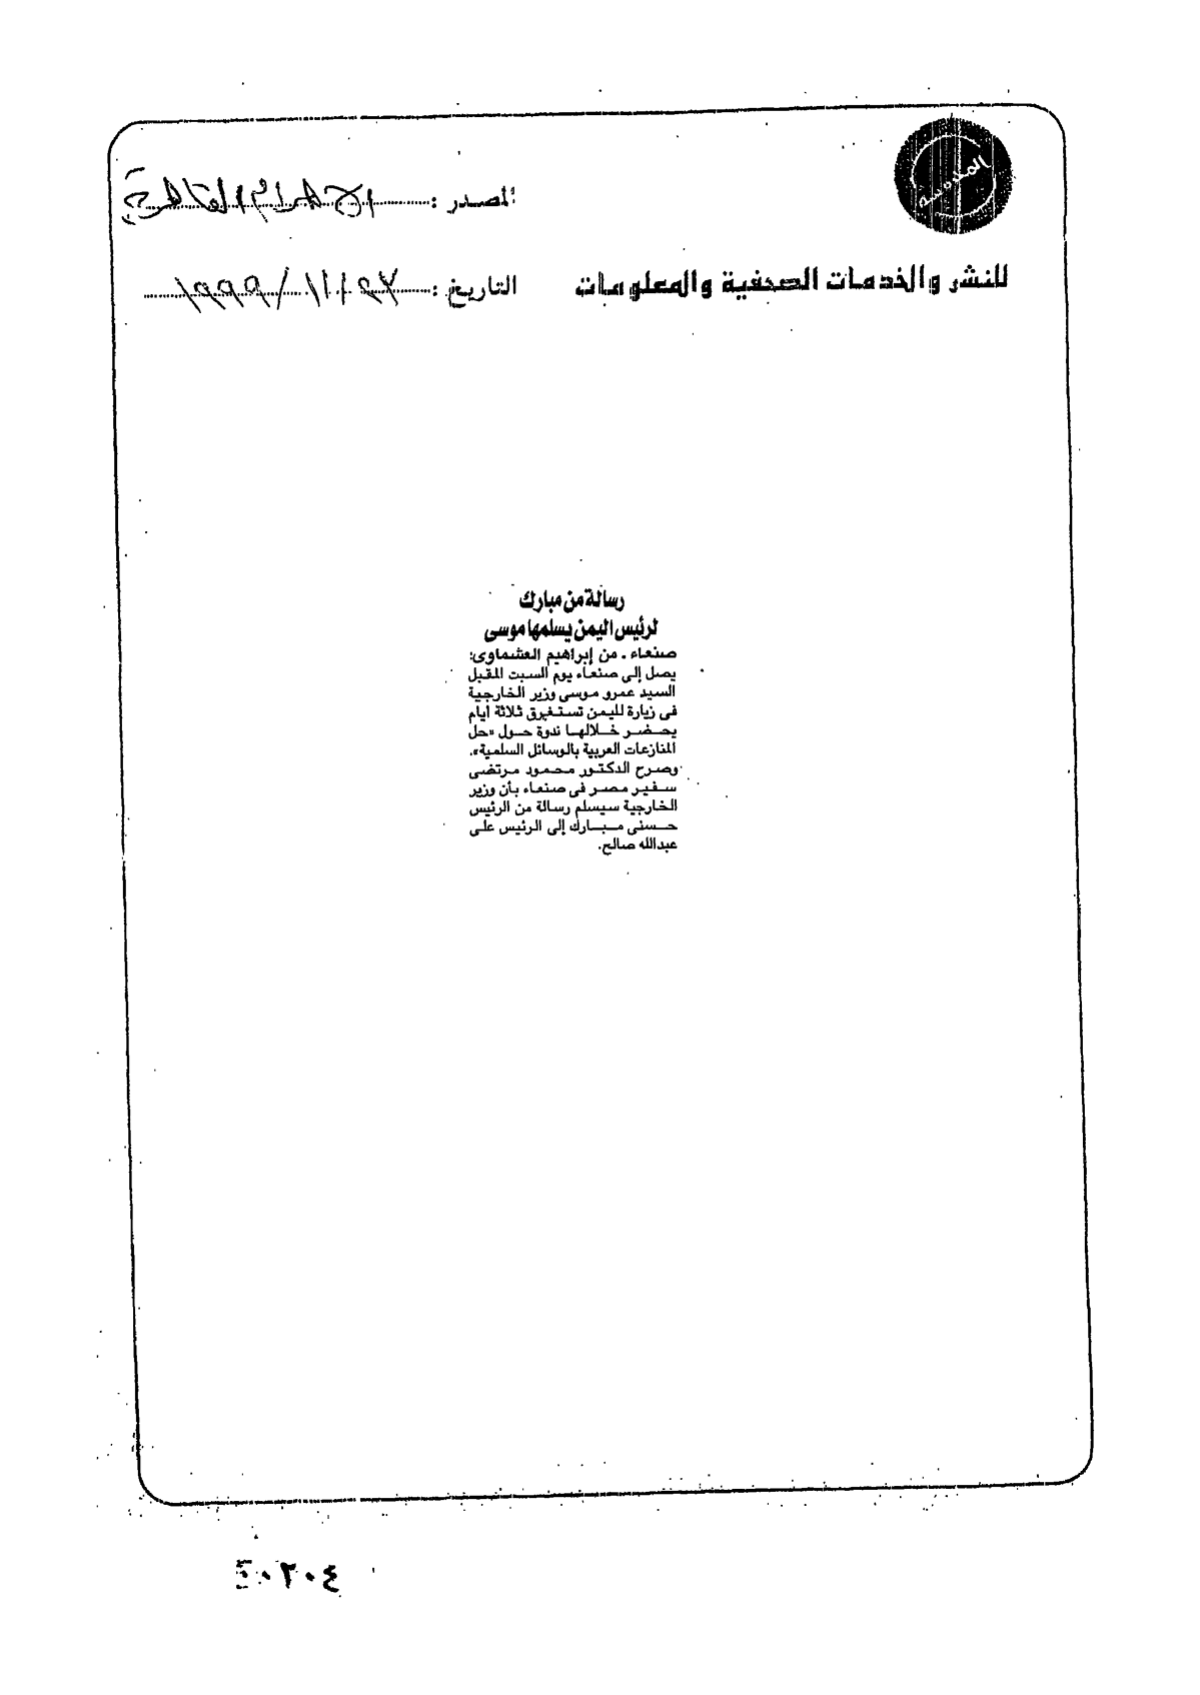 المدينة
المصدر : الاهرام القاهرية
للنشر والخدمات الصحفية والمعلومات
التاريخ : ٢٧ / ١١ / ١٩٩٩
رسالة من مبارك
لرئيس اليمن يسلمها موسى
صنعاء ـ من إبراهيم العشماوى:
يصل إلى صنعاء يوم السبت المقبل
السيد عمرو موسى وزير الخارجية
فى زيارة لليمن تستغرق ثلاثة أيام
يحضر خلالها ندوة حول «حل
المنازعات العربية بالوسائل السلمية».
وصرح الدكتور محمود مرتضى
سفير مصر فى صنعاء بأن وزير
الخارجية سيسلم رسالة من الرئيس
حسنى مبارك إلى الرئيس على
عبدالله صالح.
٠٢٠٤